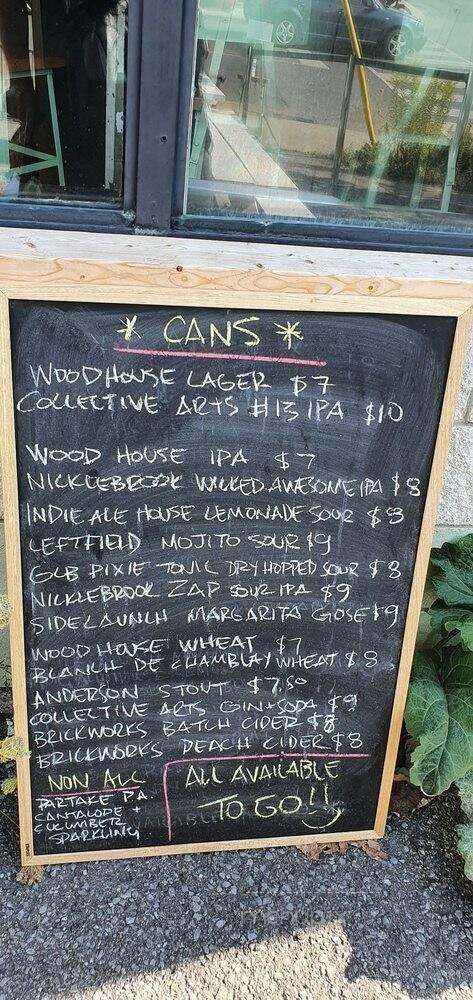 * CANS *
WOODHOUSE LAGER $7
COLLECTIVE ARTS #13 IPA $10
WOOD HOUSE IPA $7
NICKLEBROOK WICKED AWESOME IPA $8
INDIE ALE HOUSE LEMONADE SOUR $8
LEFTFIELD MOJITO SOUR $9
GLB PIXIE TONIC DRY HOPPED SOUR $8
NICKLEBROOK ZAP SOUR IPA $9
SIDELAUNCH MARGARITA GOSE $9
WOOD HOUSE WHEAT $7
BLANCH DE CHAMBLAY WHEAT $8
ANDERSON STOUT $7.50
COLLECTIVE ARTS GIN+SODA $9
BRICKWORKS BATCH CIDER $8
BRICKWORKS PEACH CIDER $8
NON ALC
PARTAKE P.A.
CANTALOPE +
CUCUMBER
SPARKLING
ALL AVAILABLE
TO GO!!